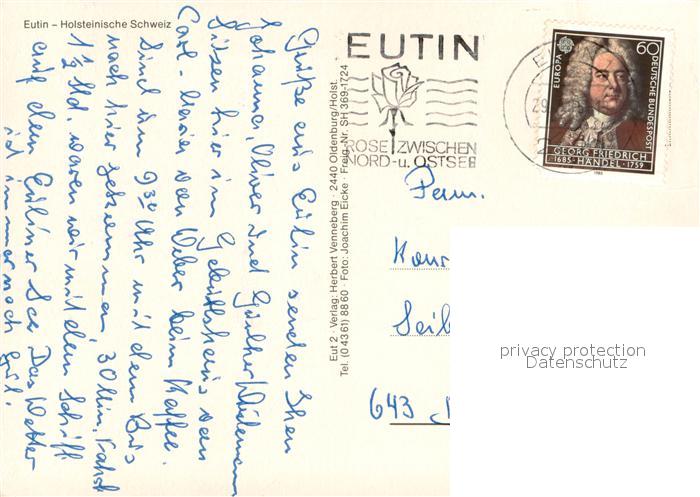 Eutin – Holsteinische Schweiz
Grüße aus Eutin senden Ihnen
Johanna, Oliver und Günther
Sitzen hier im Geburtshaus von
Carl-Maria von Weber beim Kaffee.
Sind um 9³⁰ Uhr mit dem Bus
nach hier gekommen 30 Min. Fahrt
1½ Std. waren wir mit dem Schiff
auf dem Eutiner See Das Wetter
ist immer noch gut.
Eut 2 · Verlag: Herbert Venneberg · 2440 Oldenburg/Holst.
Tel. (0 43 61) 88 60 · Foto: Joachim Eicke · Freig.-Nr. SH 369-1724
EUTIN
ROSE ZWISCHEN
NORD- u. OSTSEE
EUROPA
60
DEUTSCHE BUNDESPOST
GEORG FRIEDRICH
1685 · HÄNDEL · 1759
Fam.
643
privacy protection
Datenschutz